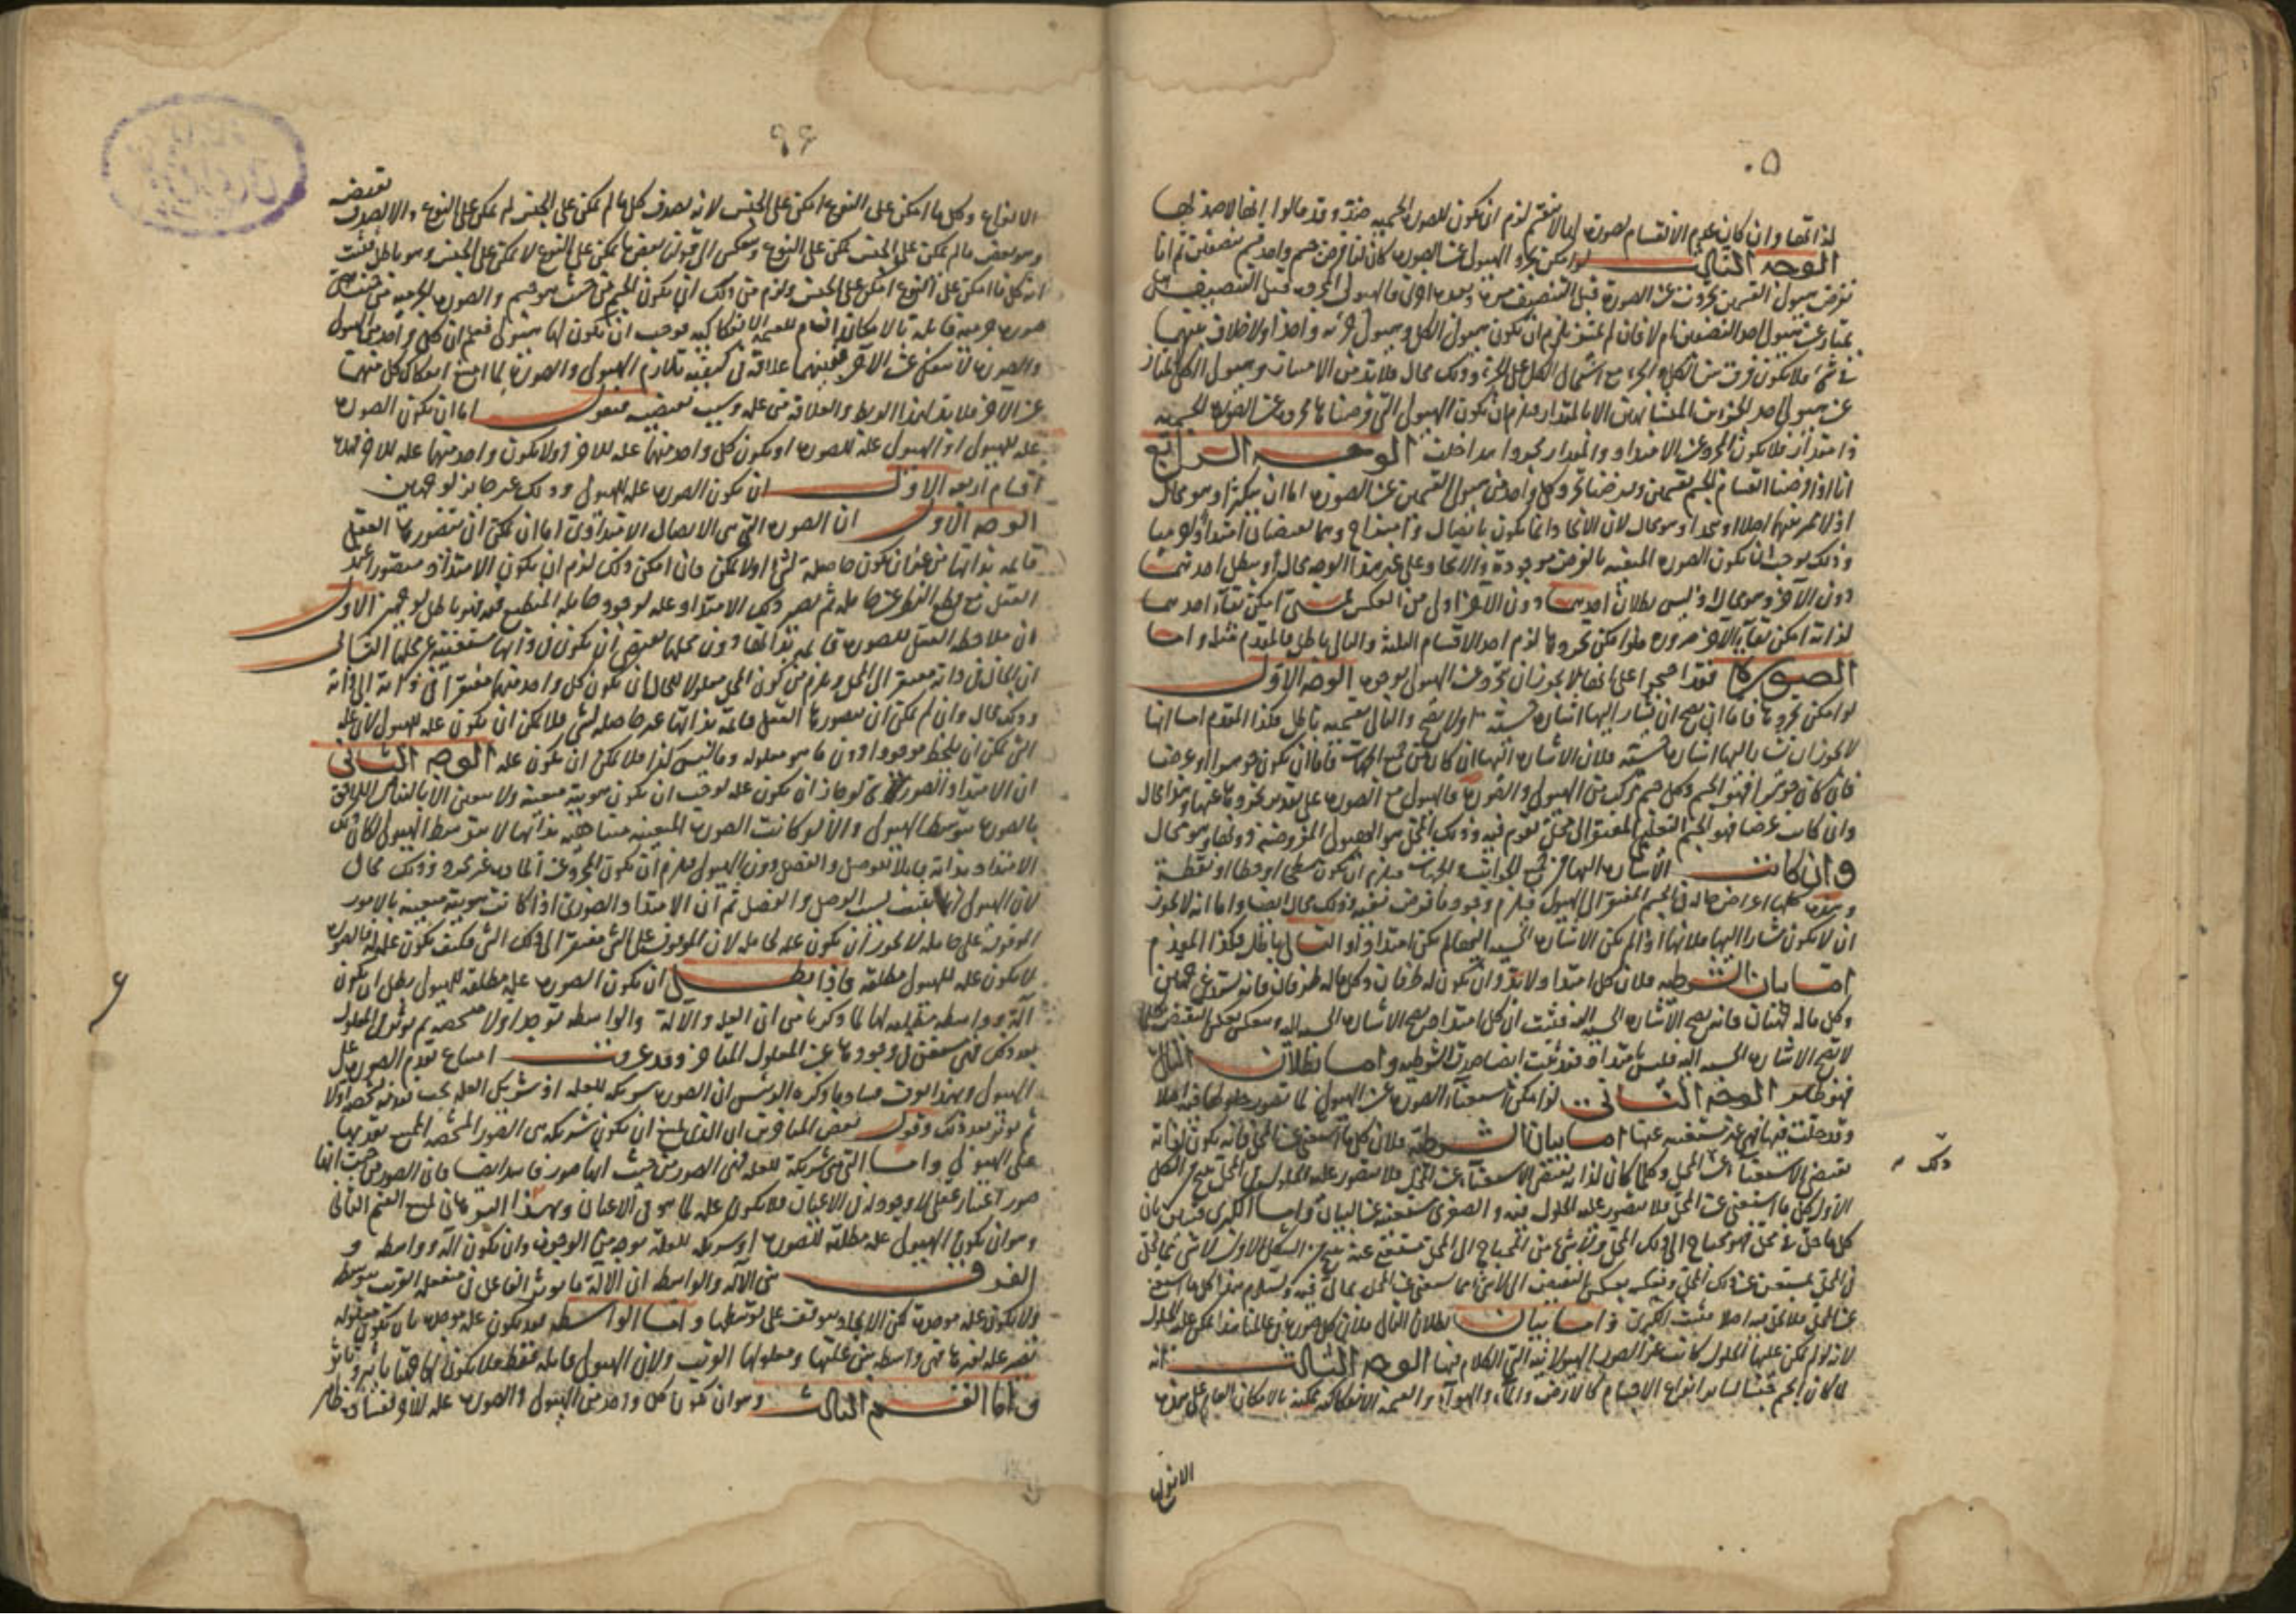 لذاتها وان كان عدم الانقسام لصورة لزم ان يكون للصورة الجسمية ضد وقد قالوا انها لا ضد لها
الوجه الثالث لو امكن تجرد الهيولى عن الصورة كان لنا فرض جسم واحد قسم بنصفين ثم انا
نفرض هيولى القسمين تجردت عن الصورة قبل التنصيف مرة وبعده اخرى فالهيولى المجردة قبل التنصيف هل
تمتاز عن هيولى احد النصفين ام لا فان لم تتميز يلزم ان يكون هيولى الكل وهيولى جزئه واحدا ولا خلاف بينهما
في شيء فلا يكون فرق بين الكل والجزء مع اشتمال الكل على الجزء وذلك محال فلا بد من الامتياز وهيولى الكل تمتاز
عن هيولى احد الجزئين المتشابهين الا بالمقدار فيلزم ان يكون الهيولى التي فرضناها مجردة عن الصورة الجسمية
ذا مقدار فلا يكون مجردة عن الامتداد والمقدار بحدوامدا خلف الوجه الرابع
انا اذا فرضنا انقسام الجسم بقسمين وفرضنا تجرد كل واحد من هيولى القسمين عن الصورة اما ان يتميزا وهو محال
اذ لا مميز بينهما اصلا او يتحدا وهو محال لان الاتحاد انما يكون باتصال وامتزاج وهما يقتضيان امتدادا
وذلك يوجب ان يكون الصورة المعينة بالفرض موجودة والاتحاد على غير هذا الوجه محال او يبطل احدهما
دون الآخر وهو محال اذ ليس بطلان احدهما دون الآخر اولى من العكس متى امكن بقاء احدهما
لذاته امكن بقاء الآخر ضرورة فلو امكن تجردها لزم احد الاقسام الثلثة والتالي باطل فالمقدم مثله واما
الصورة فقد احتجوا على انها لا يجوز ان تتجرد عن الهيولى بوجوه الوجه الاول
لو امكن تجردها فاما ان يصح ان يشار اليها اشارة حسية او لا يصح والتالي بقسميه باطل فكذا المقدم اما انها
لا يجوز ان يشار اليها اشارة حسية فلان الاشارة اليها ان كان من جميع الجهات فاما ان يكون جوهرا او عرضا
فان كان جوهرا فهو الجسم وكل جسم مركب من الهيولى والصورة فالهيولى مع الصورة على تقدير تجردها عنها وهذا محال
وان كانت عرضا فهو الجسم التعليمي المفتقر الى محل يقوم فيه وذلك المحل هو الهيولى المفروضة دونها وهو محال
وان كانت الاشارة اليها من بعض الجهات فيلزم ان يكون سطحا او خطا او نقطة
وهذه كلها اعراض حالة في الجسم المفتقر الى الهيولى فيلزم وجود ما فرض نفيه وذلك محال ايضا واما انه لا يجوز
ان لا يكون مشارا اليها فلانها اذا لم يكن الاشارة الحسية اليها لم يكن امتدادا والتالي باطل فكذا المقدم
اما بيان الشرطية فلان كل امتداد لا بد وان يكون له طرفان وكل ما له طرفان فانه يستدعي جهتين
وكل ما له جهتان فانه يصح الاشارة الحسية اليه فثبت ان كل امتداد يصح الاشارة الحسية اليه وينعكس بعكس النقيض كل ما
لا يصح الاشارة الحسية اليه فليس بامتداد فقد ثبت ايضا صدق الشرطية واما بطلان التالي
فهو ظاهر الوجه الثاني لو امكن استغناء الصورة عن الهيولى لما تصور حلولها فيه اصلا
وقد حلت فيها فهي غير مستغنية عنها اما بيان الشرطية فلان كل ما استغنى عن المحل فانه يكون لذاته
يقتضي الاستغناء عن المحل وكلما كان لذاته يقتضي الاستغناء عن المحل فلا يتصور عليه الحلول في المحل ينتج من الشكل
الاول كل ما استغنى عن المحل فلا يتصور عليه الحلول فيه والصغرى مستغنية عن البيان واما الكبرى فبيان بان
كل ما حل في محل فهو محتاج الى ذلك المحل ولا شيء من المحتاج الى المحل مستغن عنه ينتج من الشكل الاول لا شيء مما حل
في المحل بمستغن عن ذلك المحل وينعكس بعكس النقيض الى لا شيء مما يستغني عن المحل بحال فيه ويستلزم هذا كل ما استغنى
عن المحل فلا يحل فيه اصلا فثبت الكبرى واما بيان بطلان التالي فلان كل صورة في عالمنا هذا يمكن عليه الحلول
لانه لو لم يمكن عليها الحلول كانت غير الصورة الهيولانية التي الكلام فيها الوجه الثالث انه
لما كان الجسم جنسا لسائر انواع الاجسام كالارض والماء والهواء والقسمة الانفكاكية ممكنة بالامكان العام على هذه
الانواع
ذلك
الانواع وكل ما امكن على النوع امكن على الجنس لانه يصدق كل ما لم يمكن على الجنس لم يمكن على النوع والا لصدق نقيضه
وهو بعض ما لم يمكن على الجنس يمكن على النوع وينعكس الى قولنا بعض ما يمكن على النوع لا يمكن على الجنس وهو باطل فثبت
ان كل ما امكن على النوع امكن على الجنس ويلزم من ذلك ان يكون الجسم من حيث هو جسم والصورة الجرمية من حيث هي
صورة جرمية قابلة بالامكان العام للقسمة الانفكاكية فوجب ان يكون لها هيولى فعلم ان كل واحد من الهيولى
والصورة لا يستغني عن الآخر فبينهما علاقة في كيفية تلازم الهيولى والصورة لما امتنع انفكاك كل منهما
عن الآخر فلا بد لهذا الربط والعلاقة من علة وسبب يقتضيه فنقول اما ان يكون الصورة
علة للهيولى او الهيولى علة للصورة او يكون كل واحد منهما علة للآخر او لا يكون واحد منهما علة للآخر فهذه
اقسام اربعة الاول ان يكون الصورة علة للهيولى وذلك غير جائز لوجهين
الوجه الاول ان الصورة التي هي الاتصال الامتدادي اما ان يمكن ان يتصورها العقل
قائمة بذاتها من غير ان يكون حاصلة لشيء او لا يمكن فان امكن ذلك لزم ان يكون الامتداد متصورا عند
العقل مع قطع النظر عن حامله ثم يصير ذلك الامتداد علة لوجود حامله المنطبع فيه فهو باطل لوجهين الاول
ان ملاحظة العقل للصورة قائمة بذاتها دون محلها يقتضي ان يكون في ذاتها مستغنية عن محلها الثاني
ان الحال في ذاته مفتقر الى المحل ويلزم من كون المحل معلولا للحال ان يكون كل واحد منهما مفتقرا في ذاته الى ذاته
وذلك محال وان لم يمكن ان يتصورها العقل قائمة بذاتها غير حاصلة لشيء فلا يمكن ان يكون علة للهيولى لان علة
الشيء يمكن ان يلحظ موجودا دون ما هو معلوله وما ليس كذا فلا يمكن ان يكون علة الوجه الثاني
ان الامتداد الصوري لو جاز ان يكون علة لوجب ان يكون هويته معينة ولا يتعين الا بالتناهي اللاحق
بالصورة بتوسط الهيولى والا لو كانت الصورة المعينة متناهية بذاتها لا بتوسط الهيولى لكان ذلك
الامتداد بذاته قابلا للوصل والفصل دون الهيولى فيلزم ان يكون المجردة عن المادة غير مجردة وذلك محال
لان الهيولى انما يثبت بسبب الوصل والفصل ثم ان الامتداد الصوري اذا كانت هويته معينة بالامور
الموقوفة على حامله لا يجوز ان يكون علة لحامله لان الموقوف على الشيء مفتقر الى ذلك الشيء فكيف يكون علة له فالصورة
لا يكون علة للهيولى مطلقة واذا بطل ان يكون الصورة علة مطلقة للهيولى بطل ان يكون
آلة وواسطة مستقلة لها لما ذكرنا من ان العلة والآلة والواسطة توجد اولا متشخصة ثم يوجد المعلول
بعد ذلك فهي مستغنى في وجودها عن المعلول المتاخر وقد عرفت امتناع تقدم الصورة على
الهيولى وبهذا يعرف فساد ما ذكره الرئيس ان الصورة شريكة للعلة اذ شريك العلة يجب تقدمه تشخصه اولا
ثم يوثر بعد ذلك وقول بعض المتاخرين ان الذي يمنع ان يكون شريكه هي الصورة المشخصة الممتنع تقدمها
على الهيولى واما التي هي شريكة للعلة فهي الصورة من حيث انها صورة فاسد ايضا فان الصورة من حيث انها
صورة اعتبار عقلي لا وجود له في الاعيان فلا يكون علة لما هو في الاعيان وبهذا البرهان يمتنع القسم الثاني
وهو ان يكون الهيولى علة مطلقة للصورة او شريكة للعلة بوجه من الوجوه وان يكون آلة وواسطة و
الفرق بين الآلة والواسطة ان الآلة ما يوثر الفاعل في منفعله القريب بتوسطه
ولا يكون علة موجدة لكن الايجاد يتوقف على توسطها واما الواسطة فقد يكون علة موجدة بان يكون معلوله
تصير علة لغيرها فهي واسطة بين علتها ومعلولها القريب ولان الهيولى قابلة فقط فلا يكون لها جهة تاثير وتاثر
واما القسم الثالث وهو ان يكون كل واحد من الهيولى والصورة علة للآخر ففساده ظاهر